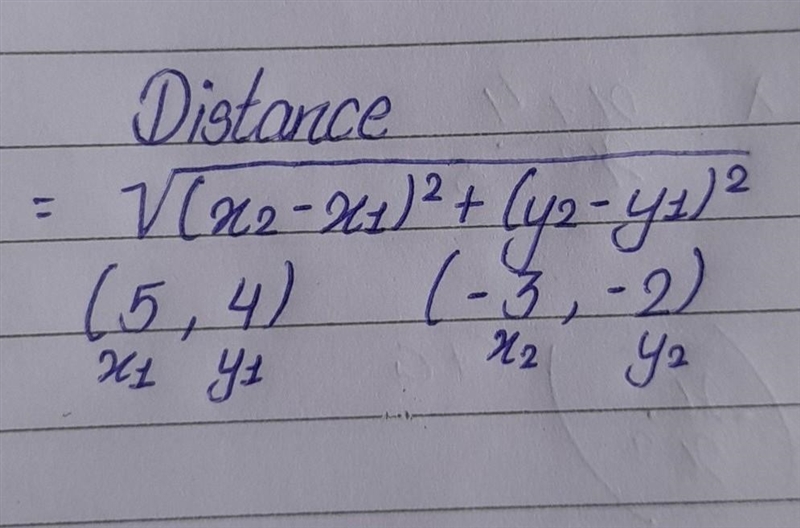 Distance
= √(x₂-x₁)² + (y₂-y₁)²
(5, 4) (-3, -2)
x₁ y₁ x₂ y₂